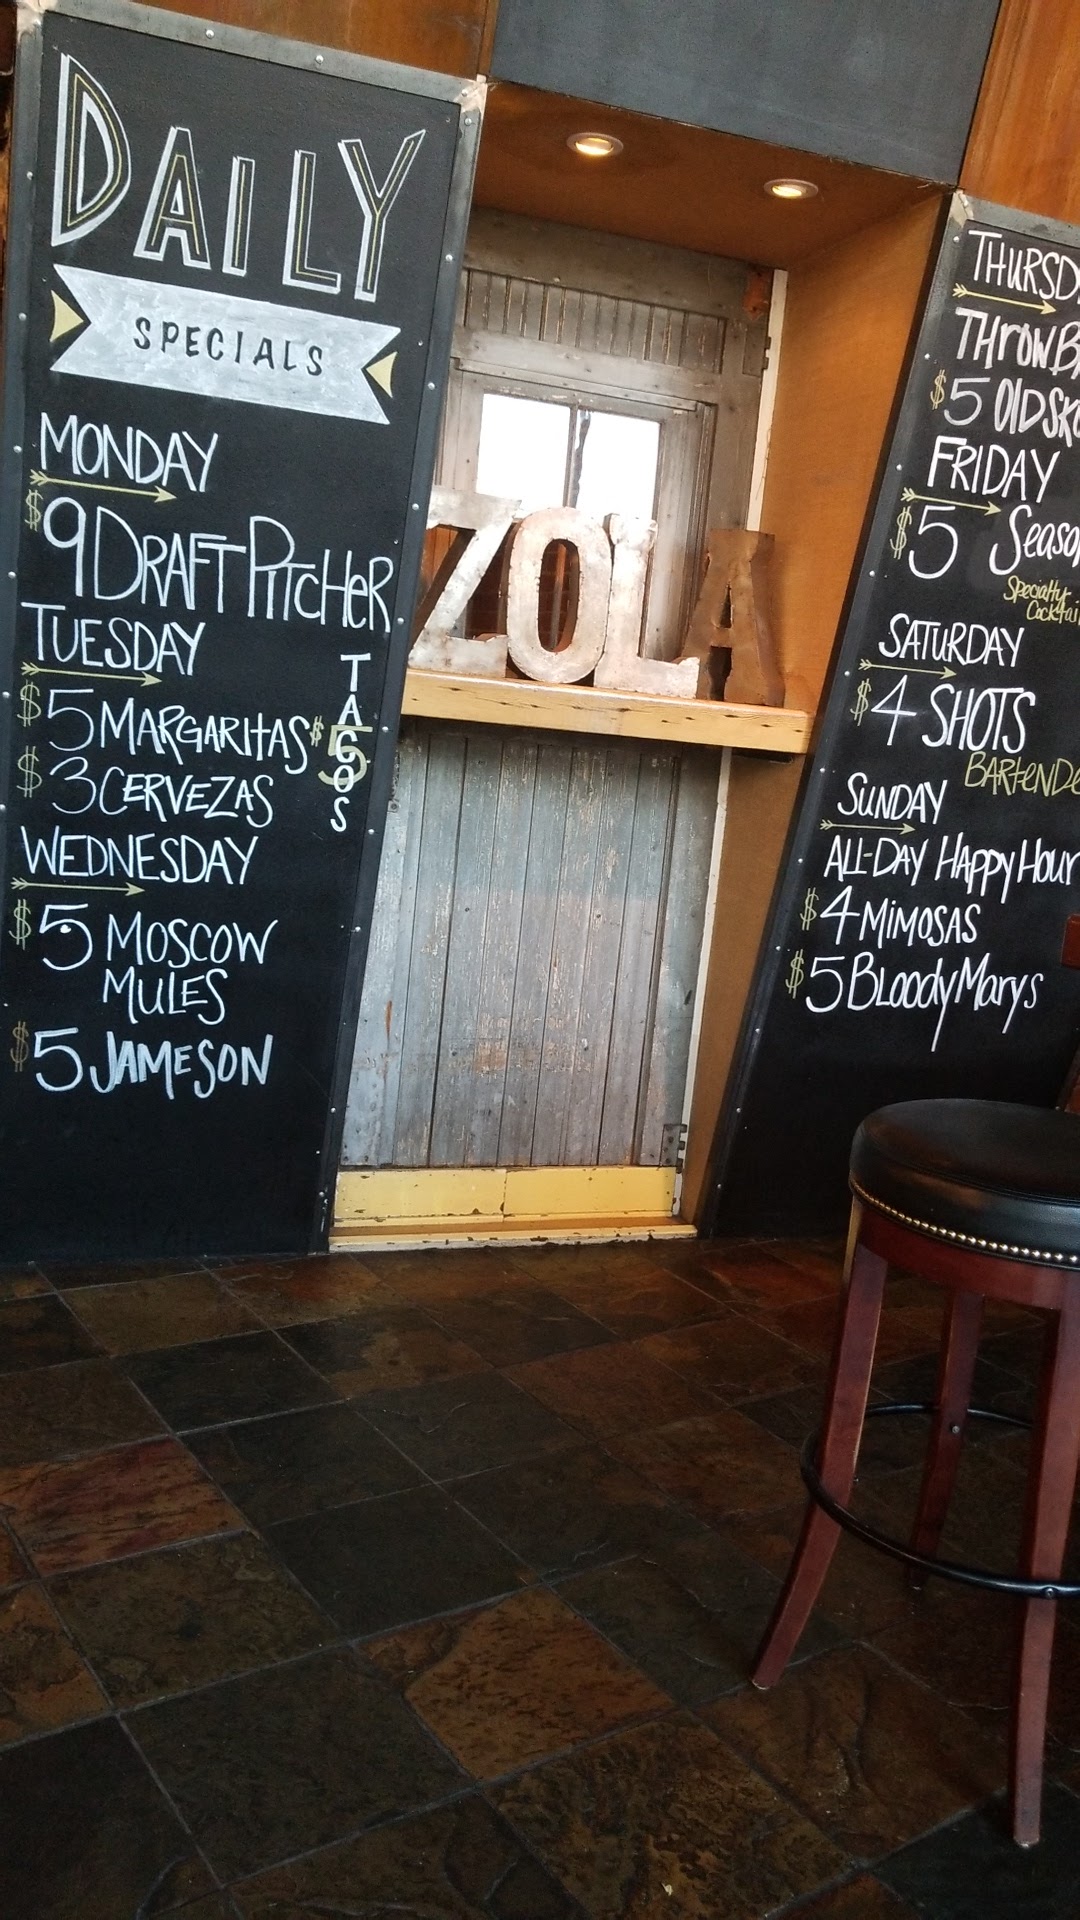 DAILY
SPECIALS
MONDAY
$9 DRAFT PITCHER
TUESDAY
$5 MARGARITAS
$3 CERVEZAS
$5
TACOS
WEDNESDAY
$5 MOSCOW
MULES
$5 JAMESON
ZOLA
THURSD
THROWB
$5 OLD SK
FRIDAY
$5 Seaso
Specialty
Cocktai
SATURDAY
$4 SHOTS
BARTENDE
SUNDAY
ALL-DAY HAPPY HOUR
$4 MIMOSAS
$5 BLOODY MARYS